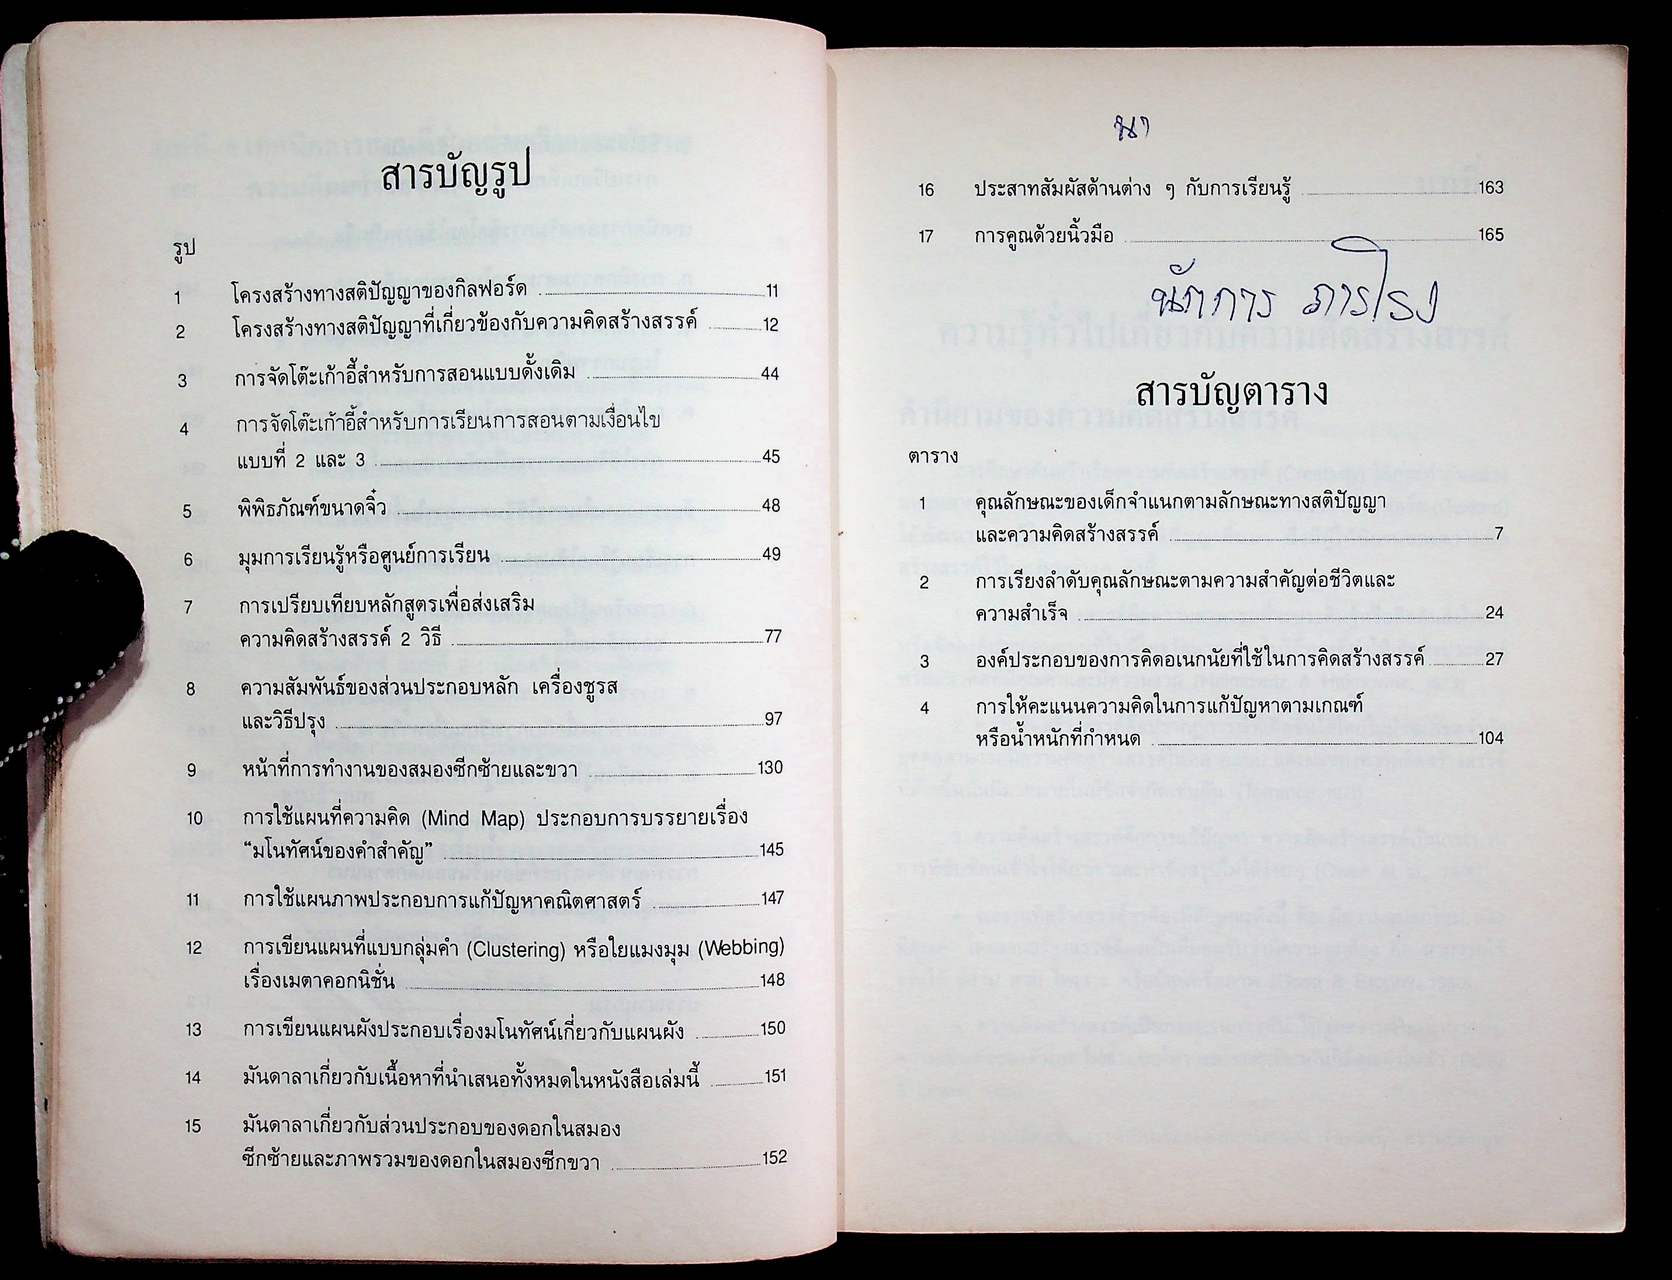 สารบัญรูป
รูป
1 โครงสร้างทางสติปัญญาของกิลฟอร์ด 11
2 โครงสร้างทางสติปัญญาที่เกี่ยวข้องกับความคิดสร้างสรรค์ 12
3 การจัดโต๊ะเก้าอี้สำหรับการสอนแบบดั้งเดิม 44
4 การจัดโต๊ะเก้าอี้สำหรับการเรียนการสอนตามเงื่อนไข
แบบที่ 2 และ 3 45
5 พิพิธภัณฑ์ขนาดจิ๋ว 48
6 มุมการเรียนรู้หรือศูนย์การเรียน 49
7 การเปรียบเทียบหลักสูตรเพื่อส่งเสริม
ความคิดสร้างสรรค์ 2 วิธี 77
8 ความสัมพันธ์ของส่วนประกอบหลัก เครื่องชูรส
และวิธีปรุง 97
9 หน้าที่การทำงานของสมองซีกซ้ายและขวา 130
10 การใช้แผนที่ความคิด (Mind Map) ประกอบการบรรยายเรื่อง
“มโนทัศน์ของคำสำคัญ” 145
11 การใช้แผนภาพประกอบการแก้ปัญหาคณิตศาสตร์ 147
12 การเขียนแผนที่แบบกลุ่มคำ (Clustering) หรือใยแมงมุม (Webbing)
เรื่องเมตาคอกนิชั่น 148
13 การเขียนแผนผังประกอบเรื่องมโนทัศน์เกี่ยวกับแผนผัง 150
14 มันดาลาเกี่ยวกับเนื้อหาที่นำเสนอทั้งหมดในหนังสือเล่มนี้ 151
15 มันดาลาเกี่ยวกับส่วนประกอบของดอกในสมอง
ซีกซ้ายและภาพรวมของดอกในสมองซีกขวา 152
16 ประสาทสัมผัสด้านต่าง ๆ กับการเรียนรู้ 163
17 การคูณด้วยนิ้วมือ 165
สารบัญตาราง
ตาราง
1 คุณลักษณะของเด็กจำแนกตามลักษณะทางสติปัญญา
และความคิดสร้างสรรค์ 7
2 การเรียงลำดับคุณลักษณะตามความสำคัญต่อชีวิตและ
ความสำเร็จ 24
3 องค์ประกอบของการคิดอเนกนัยที่ใช้ในการคิดสร้างสรรค์ 27
4 การให้คะแนนความคิดในการแก้ปัญหาตามเกณฑ์
หรือน้ำหนักที่กำหนด 104